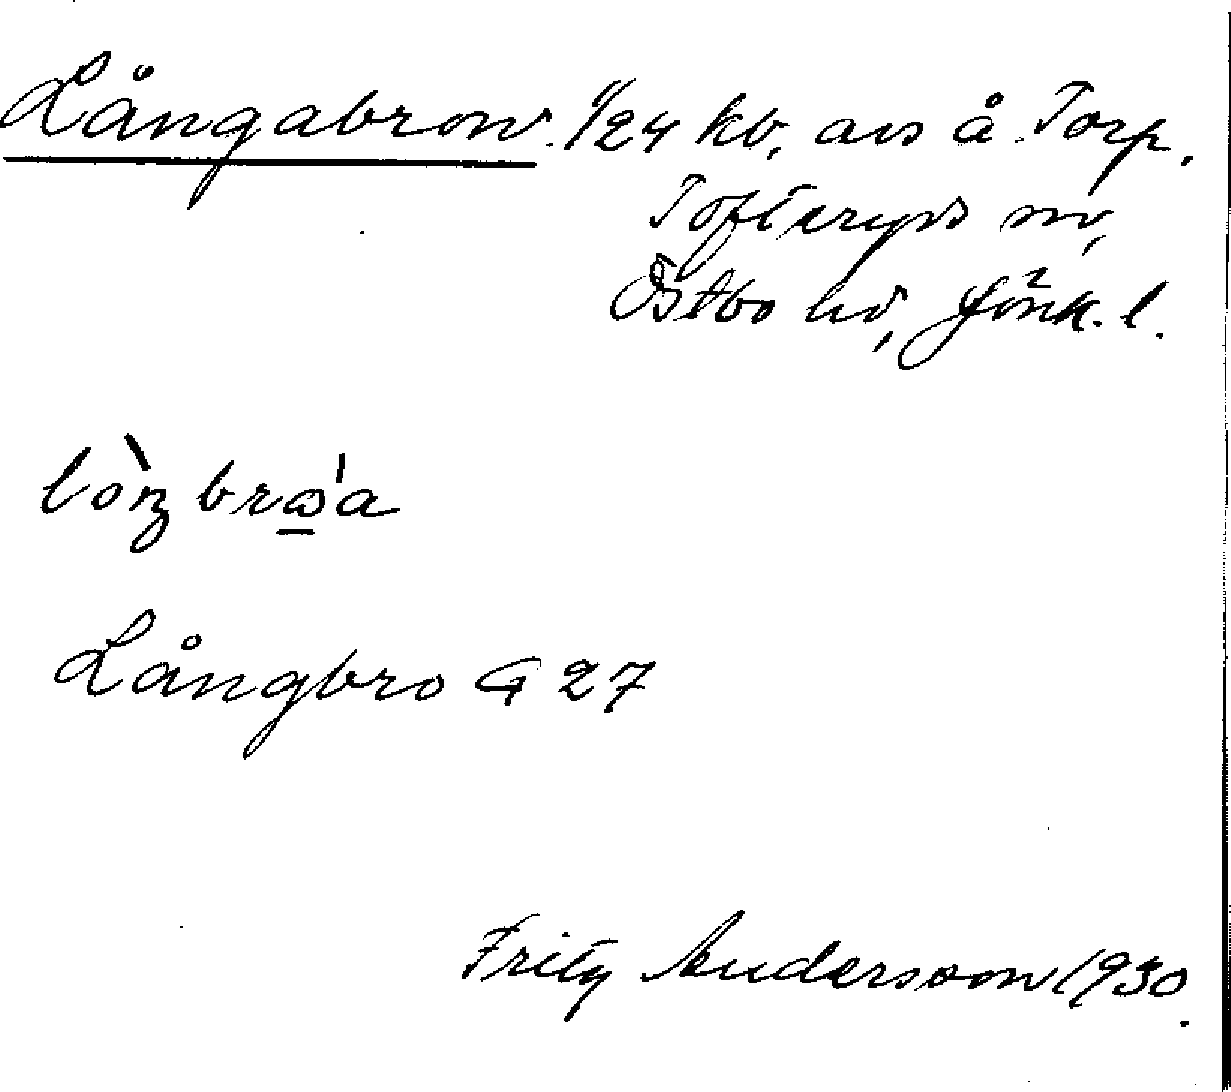 Långabron. 1/24 kb, avs å Torp.
Tofteryds sn,
Östbo hd, Jönk. l.
lòŋbrω̲'a
Långbro G 27
Fritz Andersson 1930.